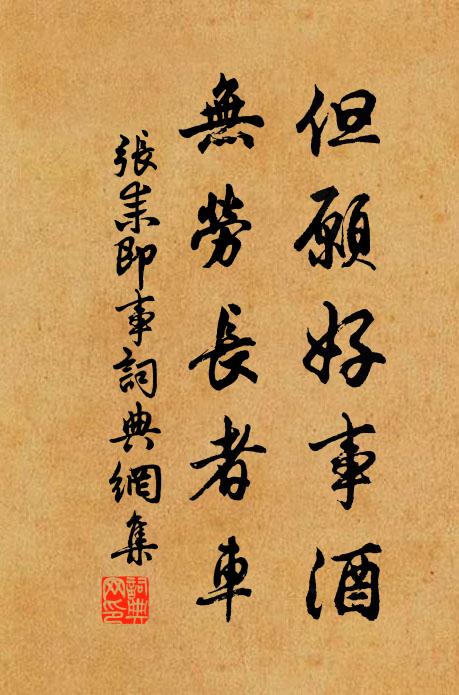 但願好事酒
無勞長者車
張耒即事詞典網集
詞典网印